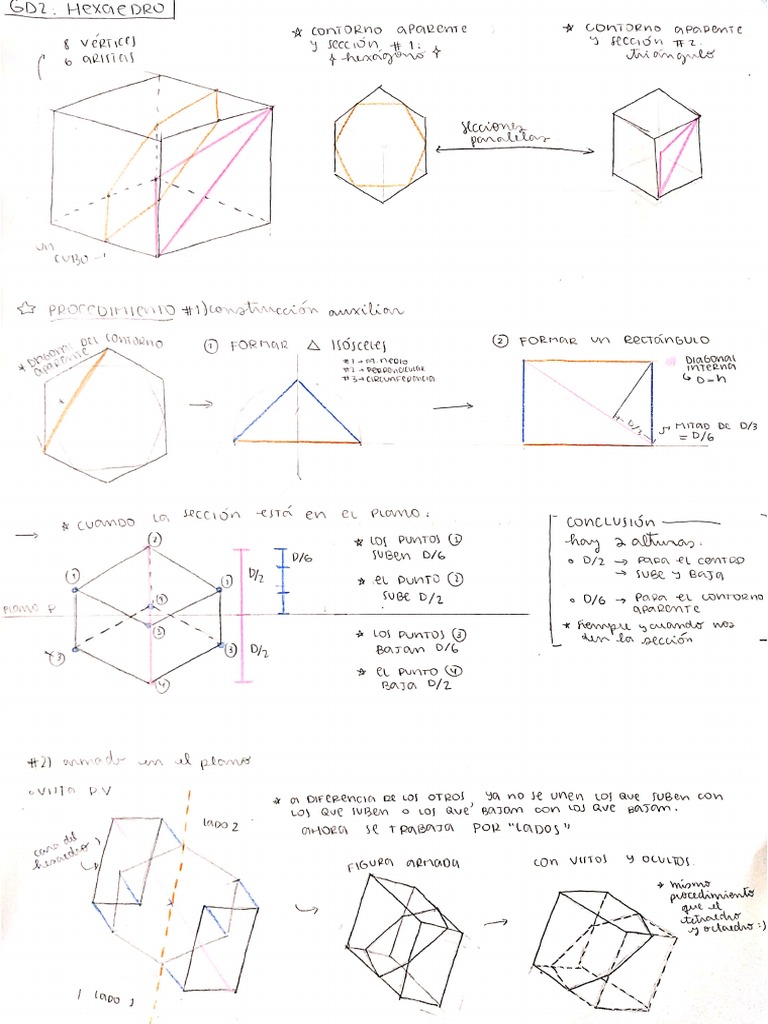 GD2: HEXAEDRO
8 VÉRTICES
6 ARISTAS
UN
CUBO
* CONTORNO APARENTE
Y SECCIÓN #1:
✧ hexágono ✧
* CONTORNO APARENTE
Y SECCIÓN #2.
triángulo
secciones
paralelas
☆ PROCEDIMIENTO #1) construcción auxiliar
* DIAGONAL DEL CONTORNO
APARENTE
① FORMAR △ ISÓSCELES
#1 → M. MEDIO
#2 → PERPENDICULAR
#3 → CIRCUNFERENCIA
② FORMAR UN RECTÁNGULO
DIAGONAL
INTERNA
↳ D-h
D/3
MITAD DE D/3
= D/6
→ * CUANDO LA SECCIÓN ESTÁ EN EL PLANO:
②
①
①
①
PLANO P
③
③
③
④
D/2
D/2
D/6
* LOS PUNTOS ①
SUBEN D/6
* EL PUNTO ②
SUBE D/2
* LOS PUNTOS ③
BAJAN D/6
* EL PUNTO ④
BAJA D/2
CONCLUSIÓN
hay 2 alturas.
• D/2 → PARA EL CENTRO
→ SUBE Y BAJA
• D/6 → PARA EL CONTORNO
APARENTE
* siempre y cuando nos
den la sección
#2) armado en el plano
• VISTA PV
cara del
hexaedro
LADO 2
LADO 1
* A DIFERENCIA DE LOS OTROS YA NO SE UNEN LOS QUE SUBEN CON
LOS QUE SUBEN O LOS QUE BAJAN CON LOS QUE BAJAN.
AHORA SE TRABAJA POR "LADOS"
FIGURA ARMADA
CON VISTOS Y OCULTOS.
* mismo
procedimiento
que el
tetraedro
y octaedro :)